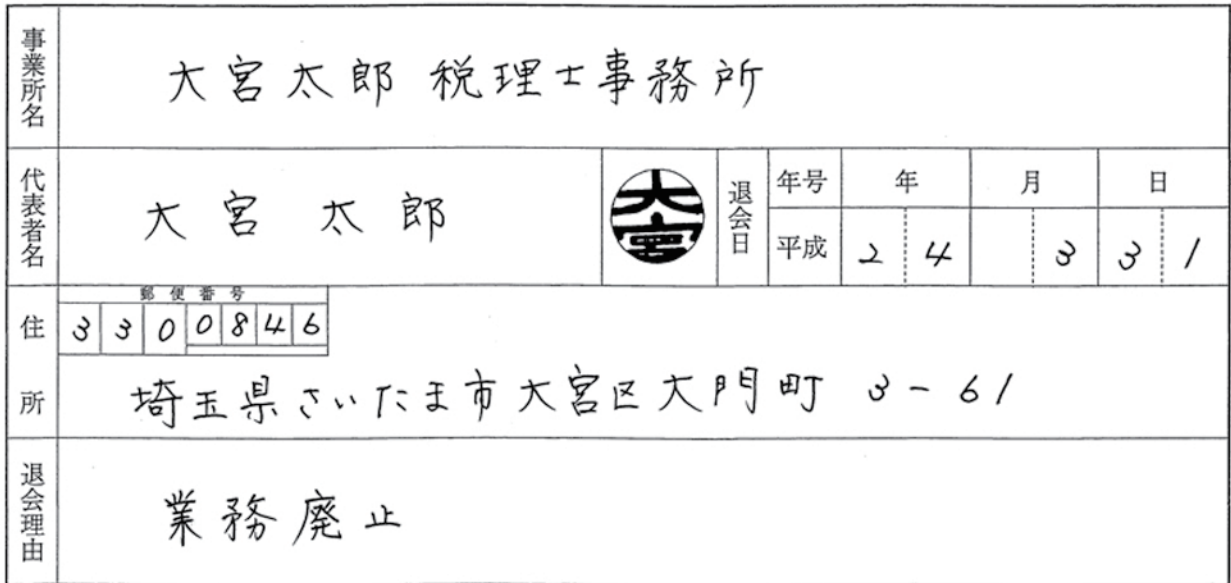 事業所名
大宮太郎 税理士事務所
代表者名
大宮 太郎
大宮
退会日
年号 年 月 日
平成 2 4 3 3 1
住所
郵便番号
3 3 0 0 8 4 6
埼玉県さいたま市大宮区大門町 3-61
退会理由
業務廃止